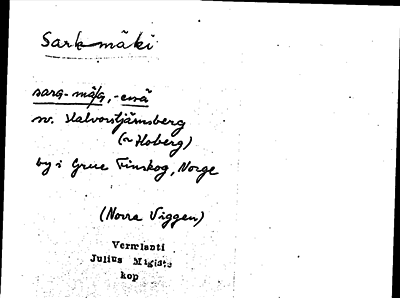 Sarkmäki
sarg-mäg, -emä
sv. Halvorstjärnsberg
(~ Hoberg)
by i Grue Finskog, Norge
(Norra Viggen)
Vermlanti
Julius Mägiste
kop